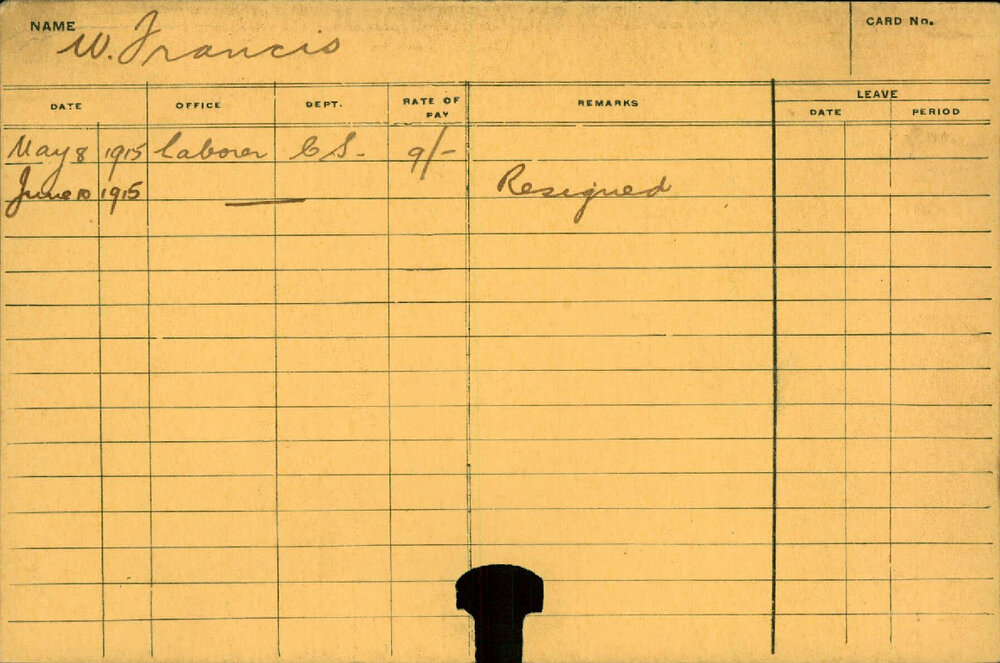 NAME W. Francis CARD No.
DATE OFFICE DEPT. RATE OF PAY REMARKS LEAVE
DATE PERIOD
May 8 1915 Laborer C S. 9/-
June 10 1915 — Resigned